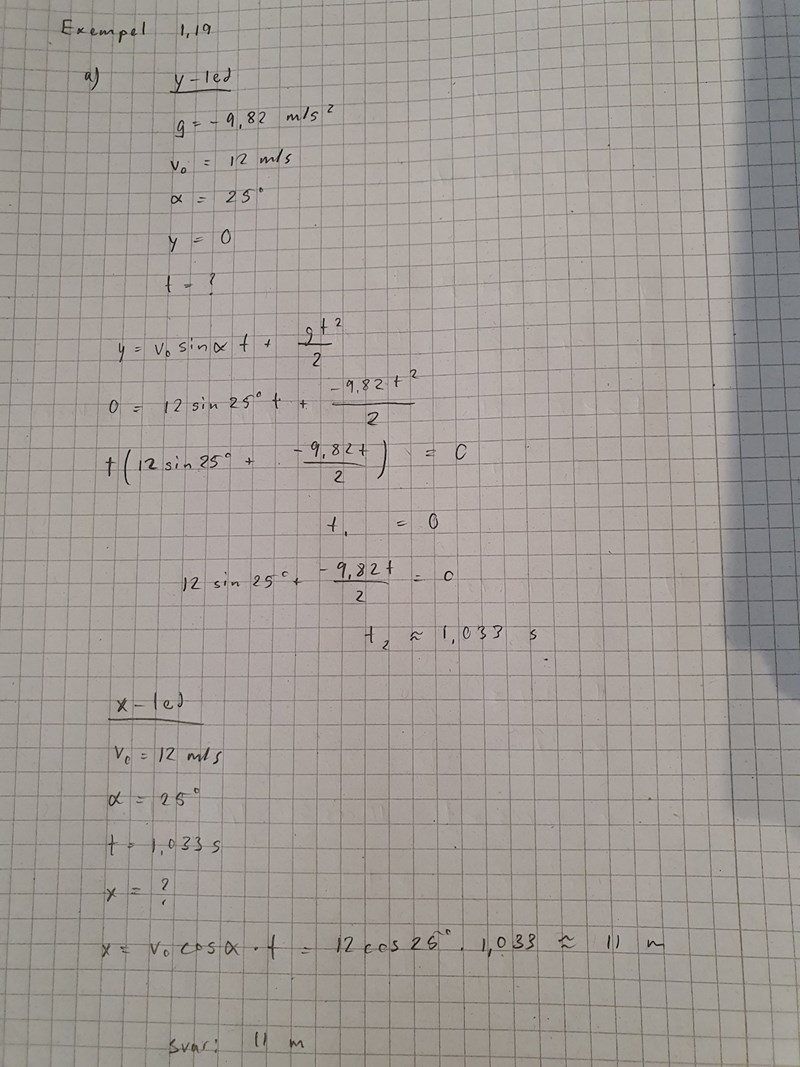 Exempel 1,19
a) y-led
g = -9,82 m/s²
v₀ = 12 m/s
α = 25°
y = 0
t = ?
y = v₀ sin α t + gt²/2
0 = 12 sin 25° t + -9,82t²/2
t(12 sin 25° + -9,82t/2) = 0
t₁ = 0
12 sin 25° + -9,82t/2 = 0
t₂ ≈ 1,033 s
x-led
v₀ = 12 m/s
α = 25°
t = 1,033 s
x = ?
x = v₀ cos α · t = 12 cos 25° · 1,033 ≈ 11 m
svar: 11 m